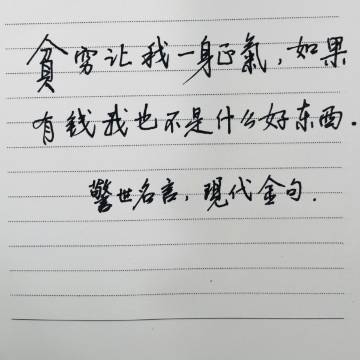 貧穷让我一身正氣，如果
有钱我也不是什么好东西.
警世名言，現代金句.